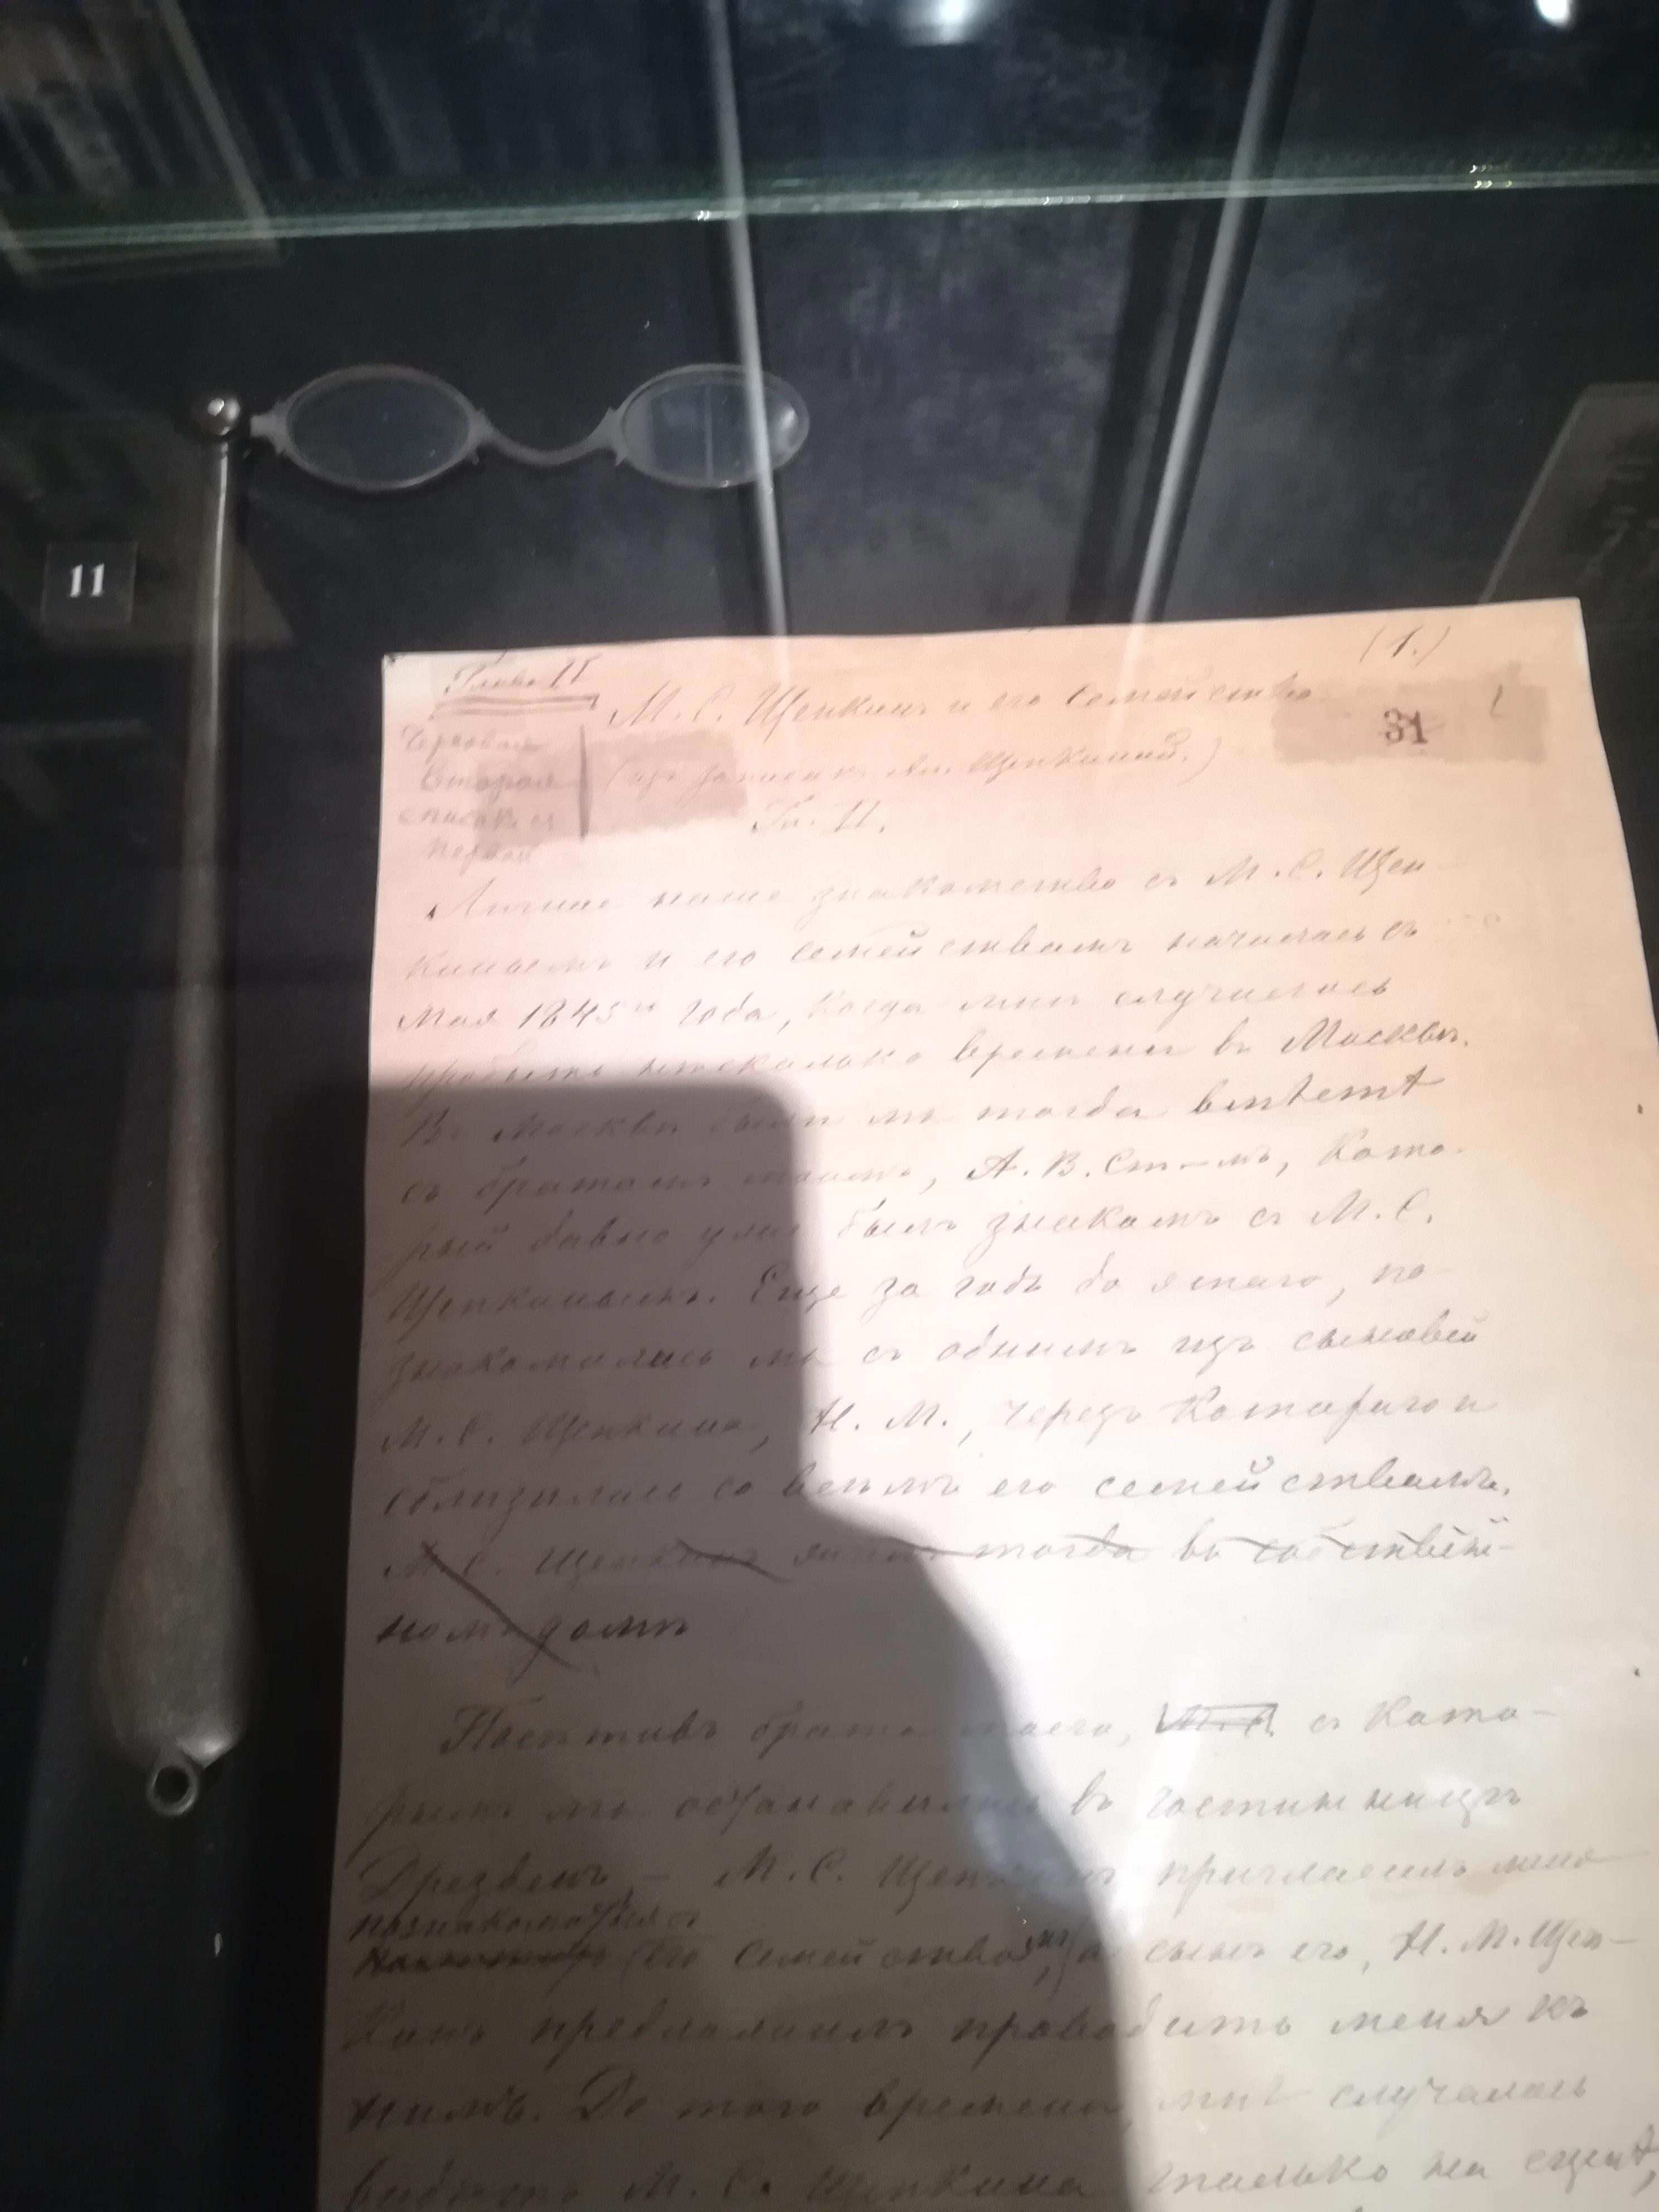 11
(1.)
Глава II
М. С. Щепкинъ и его семейство.
31
Черновая
вторая
списак. съ
первой
(изъ записокъ Ал. Щепкиной.)
Гл. II.
Личное наше знакомство съ М. С. Щеп-
кинымъ и его семействомъ началось съ
Мая 1845го года, когда мнѣ случилось
пробыть нѣсколько времени въ Москвѣ.
Въ Москвѣ были мы тогда вмѣстѣ
съ братомъ моимъ, А. В. Ст-мъ, кото-
рый давно уже былъ знакомъ съ М. С.
Щепкинымъ. Еще за годъ до этого, по-
знакомились мы съ однимъ изъ сыновей
М. С. Щепкина, Н. М., черезъ котораго и
сблизились со всѣмъ его семействомъ.
М. С. Щепкинъ жилъ тогда въ собствен-
номъ домѣ
Посѣтивъ брата моего, М. С. съ кото-
рымъ мы остановились въ гостинницѣ
Дрезденъ, — М. С. Щепкинъ пригласилъ меня
познакомиться съ
его семействомъ, а сынъ его, Н. М. Щеп-
кинъ предложилъ проводить меня къ
нимъ. До того времени, мнѣ случалось
видѣть М. С. Щепкина только на сценѣ,